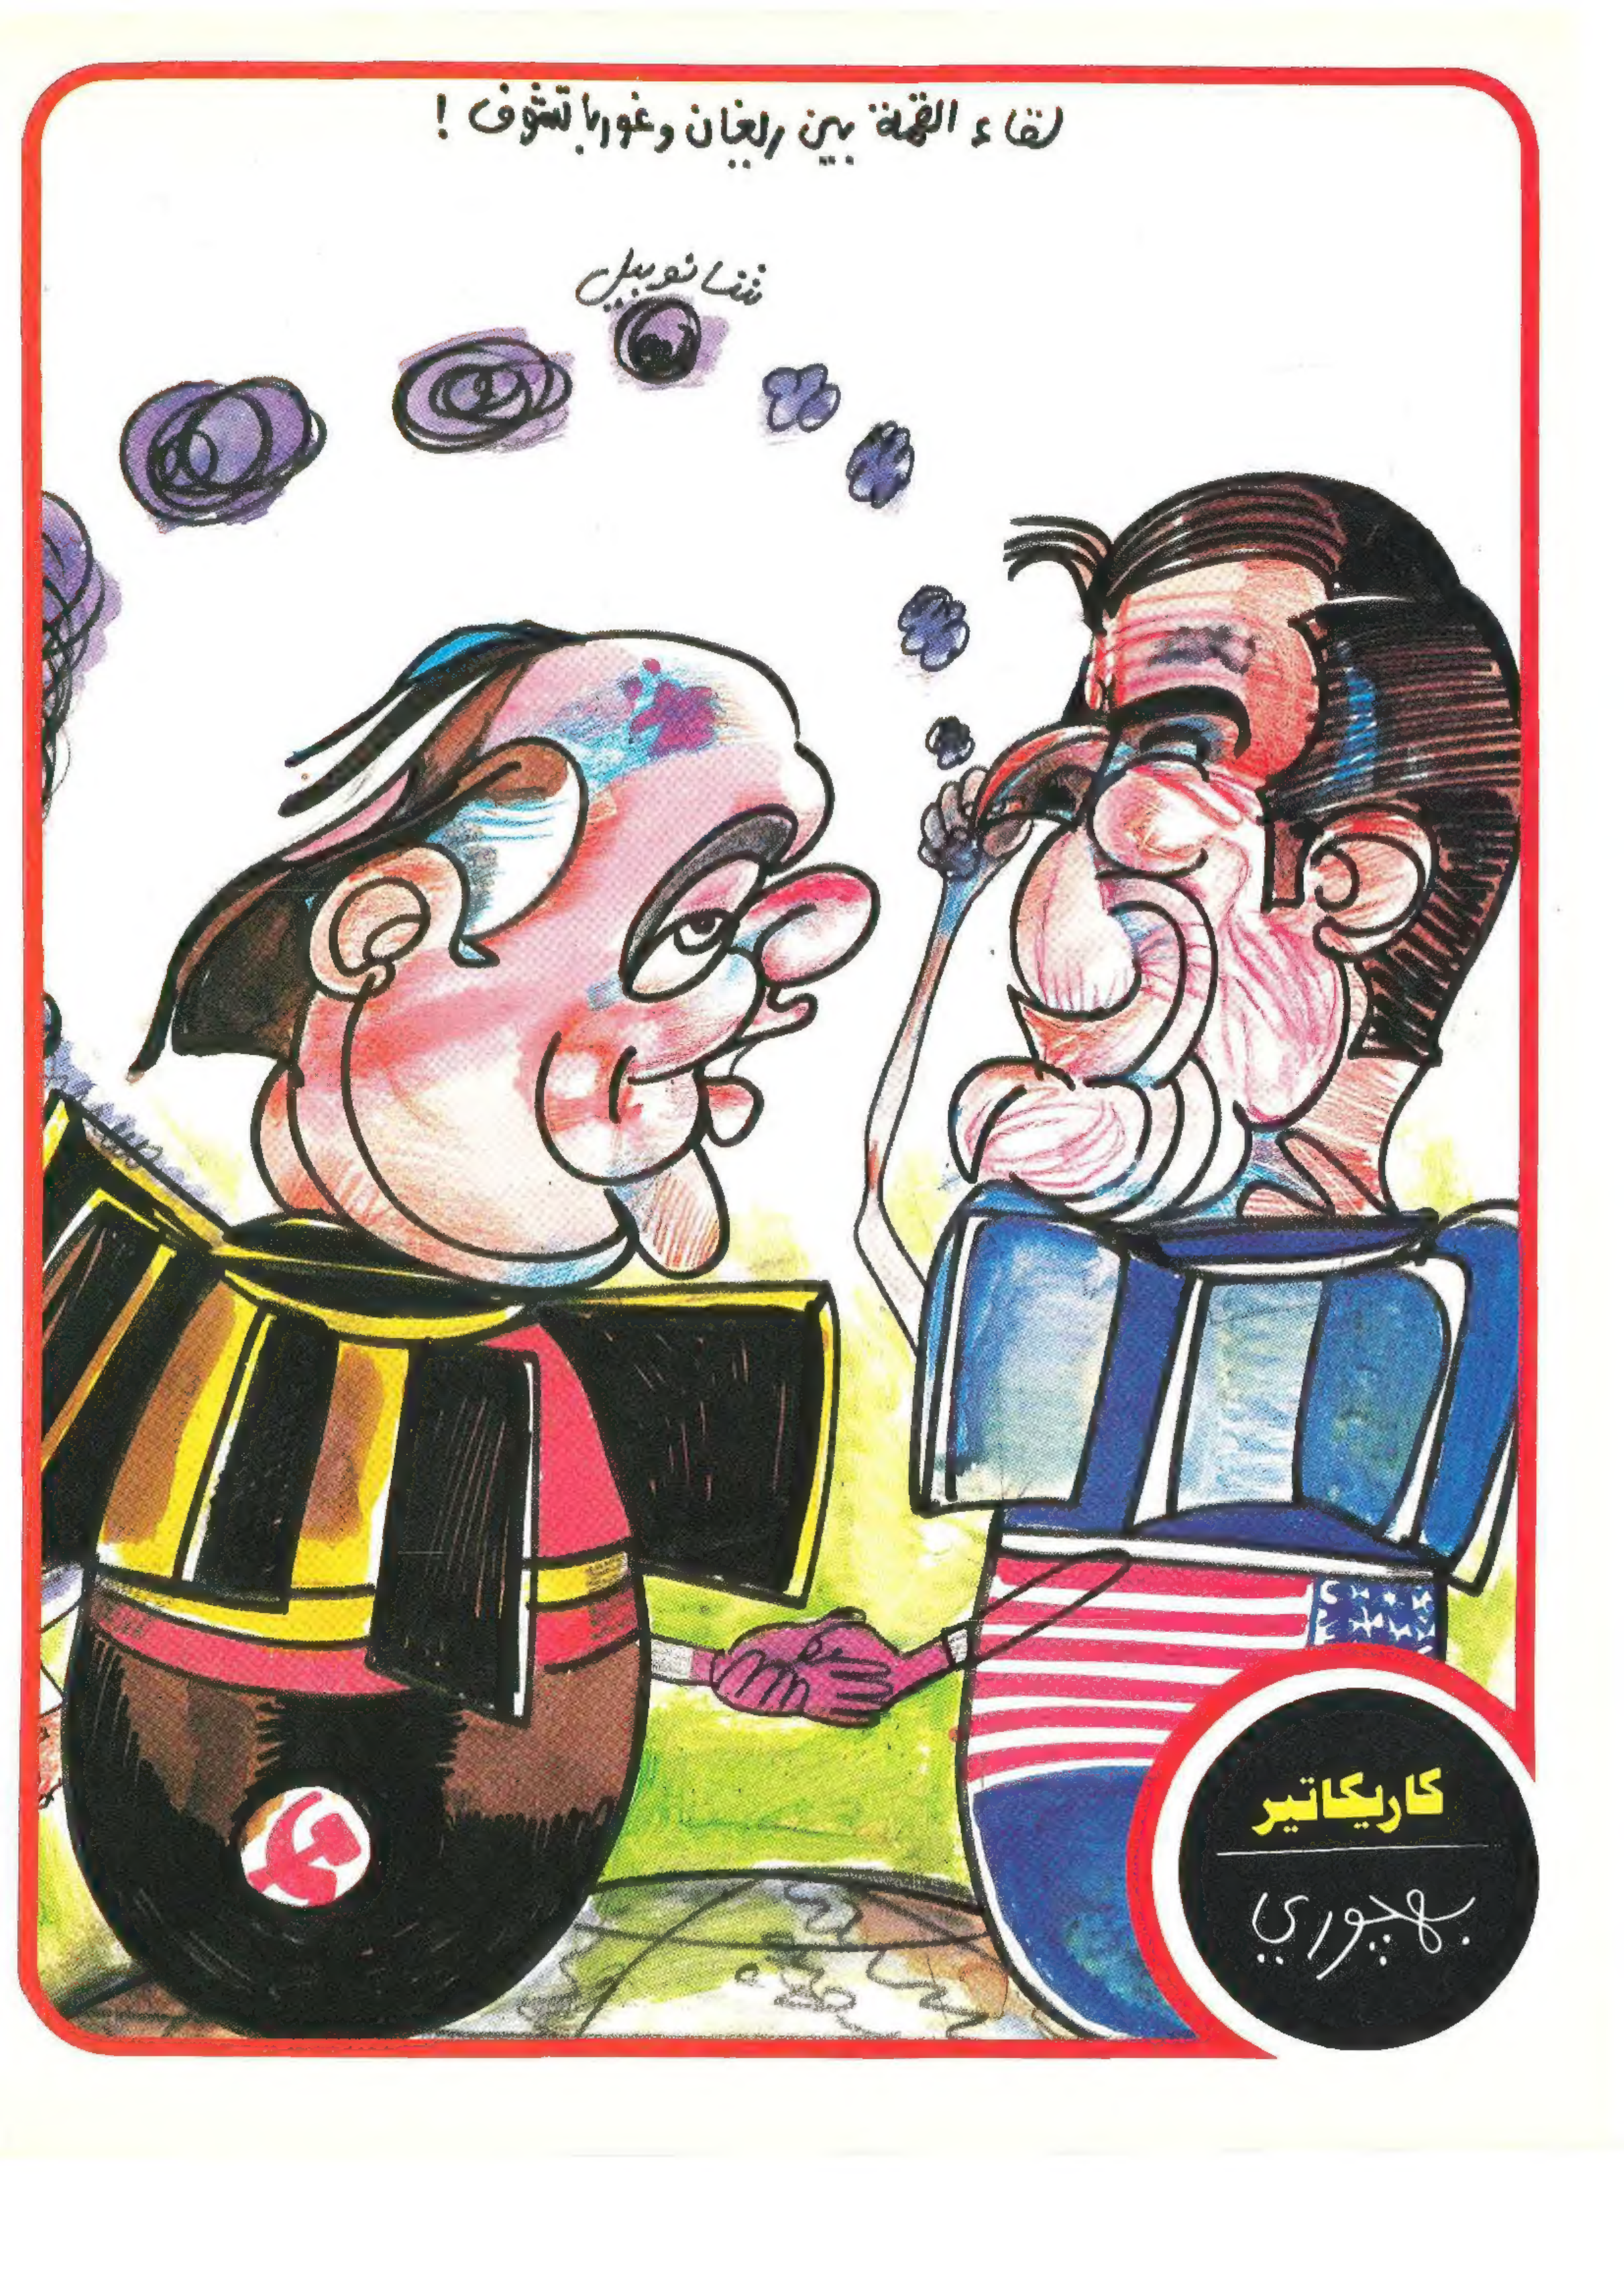 لقاء القمة بين ريغان وغورباتشوف !
شانوبيل
كاريكاتير
بهجوري